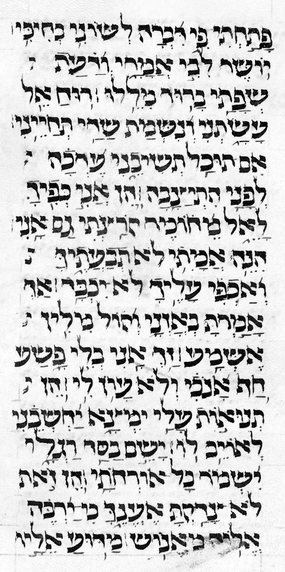 פתחתי פי דברה לשוני בחיכי
יושר לבי אמרי ודעת
שפתי ברור מללו רוח אל
עשתני ונשמת שדי תחייני
אם תוכל תשיבני ערכה
לפני התיצבה הן אני כפיך
לאל מחומר קרצתי גם אני
הנה אמתי לא תבעתיך
ואכפי עליך לא יכבד אך
אמרת באזני וקול מלין
אשמע זך אני בלי פשע
חף אנכי ולא עון לי הן
תנואות עלי ימצא יחשבני
לאויב לו ישם בסד רגלי
ישמר כל אורחתי הן זאת
לא צדקת אענך כי ירבה
אלוה מאנוש מדוע אליו